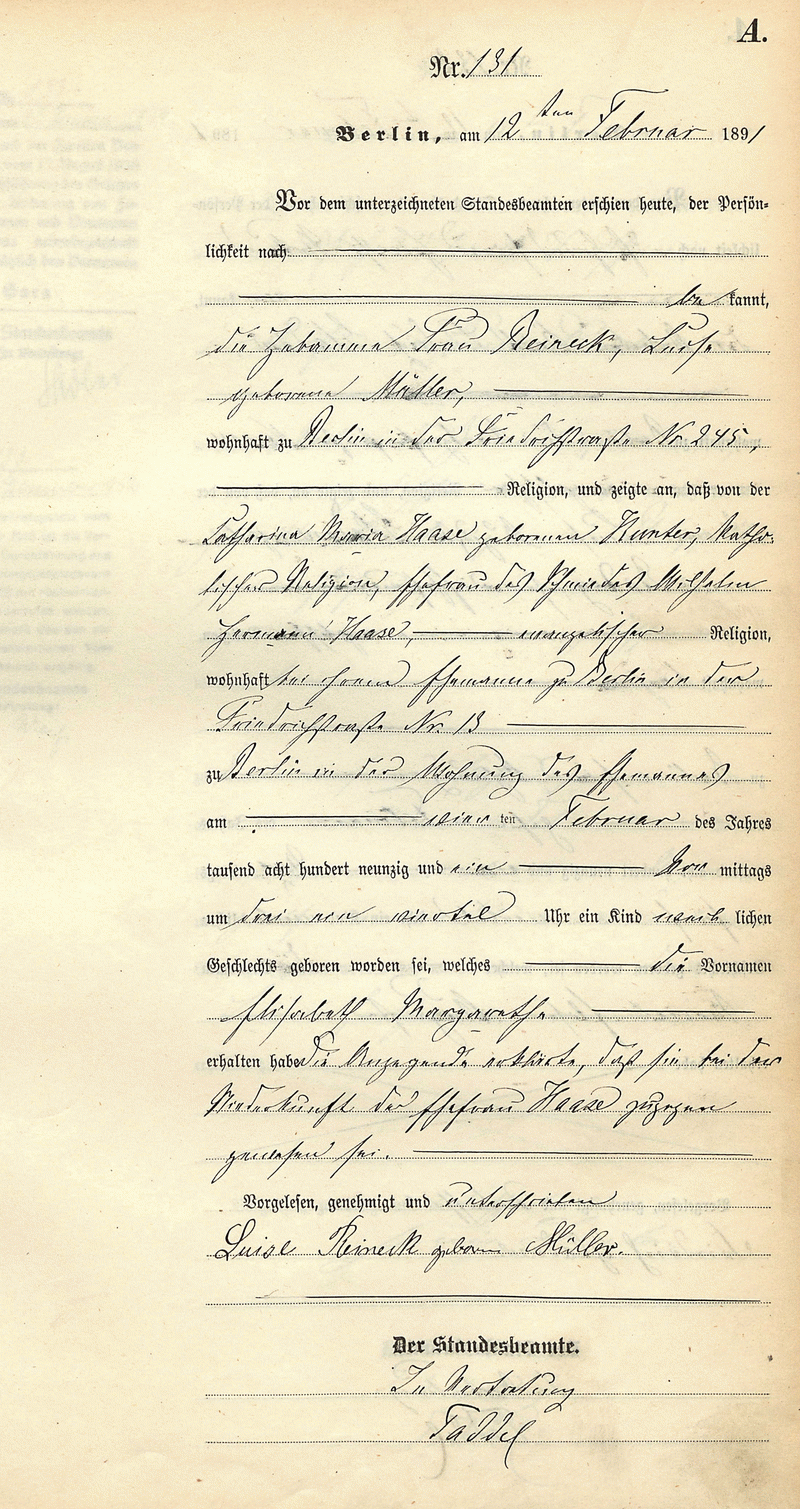 A.
Nr. 131
Berlin, am 12 ten Februar 1891
Vor dem unterzeichneten Standesbeamten erschien heute, der Persön-
lichkeit nach
bekannt,
die Hebamme Frau Reineck, Luise
geborene Müller,
wohnhaft zu Berlin in der Friedrichstraße Nr 245,
Religion, und zeigte an, daß von der
Catharina Maria Haase geborenen Hunter, katho-
lischer Religion, Ehefrau des Schmiedes Wilhelm
Hermann Haase, evangelischer Religion,
wohnhaft bei ihrem Ehemanne zu Berlin in der
Friedrichstraße Nr. 13
zu Berlin in der Wohnung des Ehemannes
am vier ten Februar des Jahres
tausend acht hundert neunzig und ein Vor mittags
um drei ein viertel Uhr ein Kind weib lichen
Geschlechts geboren worden sei, welches die Vornamen
Elisabeth Margarethe
erhalten habe die Anzeigende erklärte, daß sie bei der
Niederkunft der Ehefrau Haase zugegen
gewesen sei.
Vorgelesen, genehmigt und unterschrieben
Luise Reineck geborne Müller.
Der Standesbeamte.
In Vertretung
Taddel